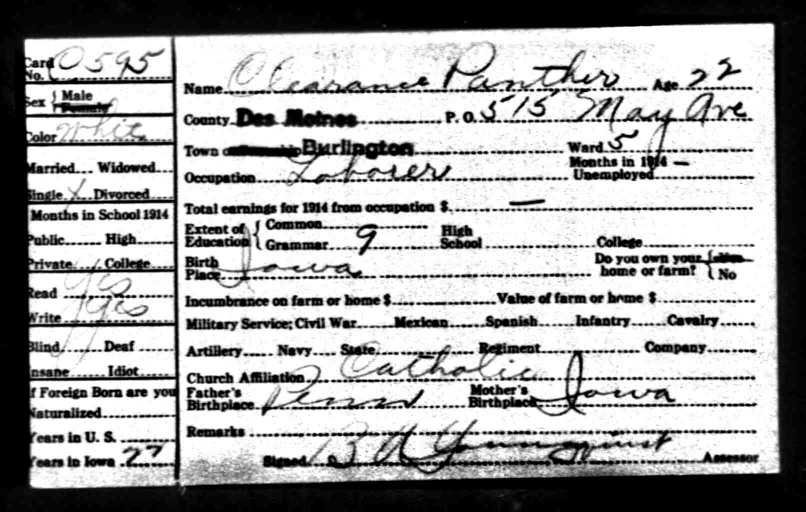 Card No. C 595
Sex { Male Female
Color White
Married Widowed
Single X Divorced
Months in School 1914
Public High
Private College
Read Yes
Write Yes
Blind Deaf
Insane Idiot
If Foreign Born are you
Naturalized
Years in U. S.
Years in Iowa 22
Name Clearance Panther Age 22
County Des Moines P. O. 515 May Ave
Town or Burlington Ward 5
Occupation Laborer Months in 1914 Unemployed —
Total earnings for 1914 from occupation $ —
Extent of Education { Common Grammar 9 High School College
Birth Place Iowa Do you own your home or farm? { No
Incumbrance on farm or home $ Value of farm or home $
Military Service: Civil War Mexican Spanish Infantry Cavalry
Artillery Navy State Regiment Company
Church Affiliation Catholic
Father's Birthplace Penn Mother's Birthplace Iowa
Remarks
Signed B A Youngquist Assessor